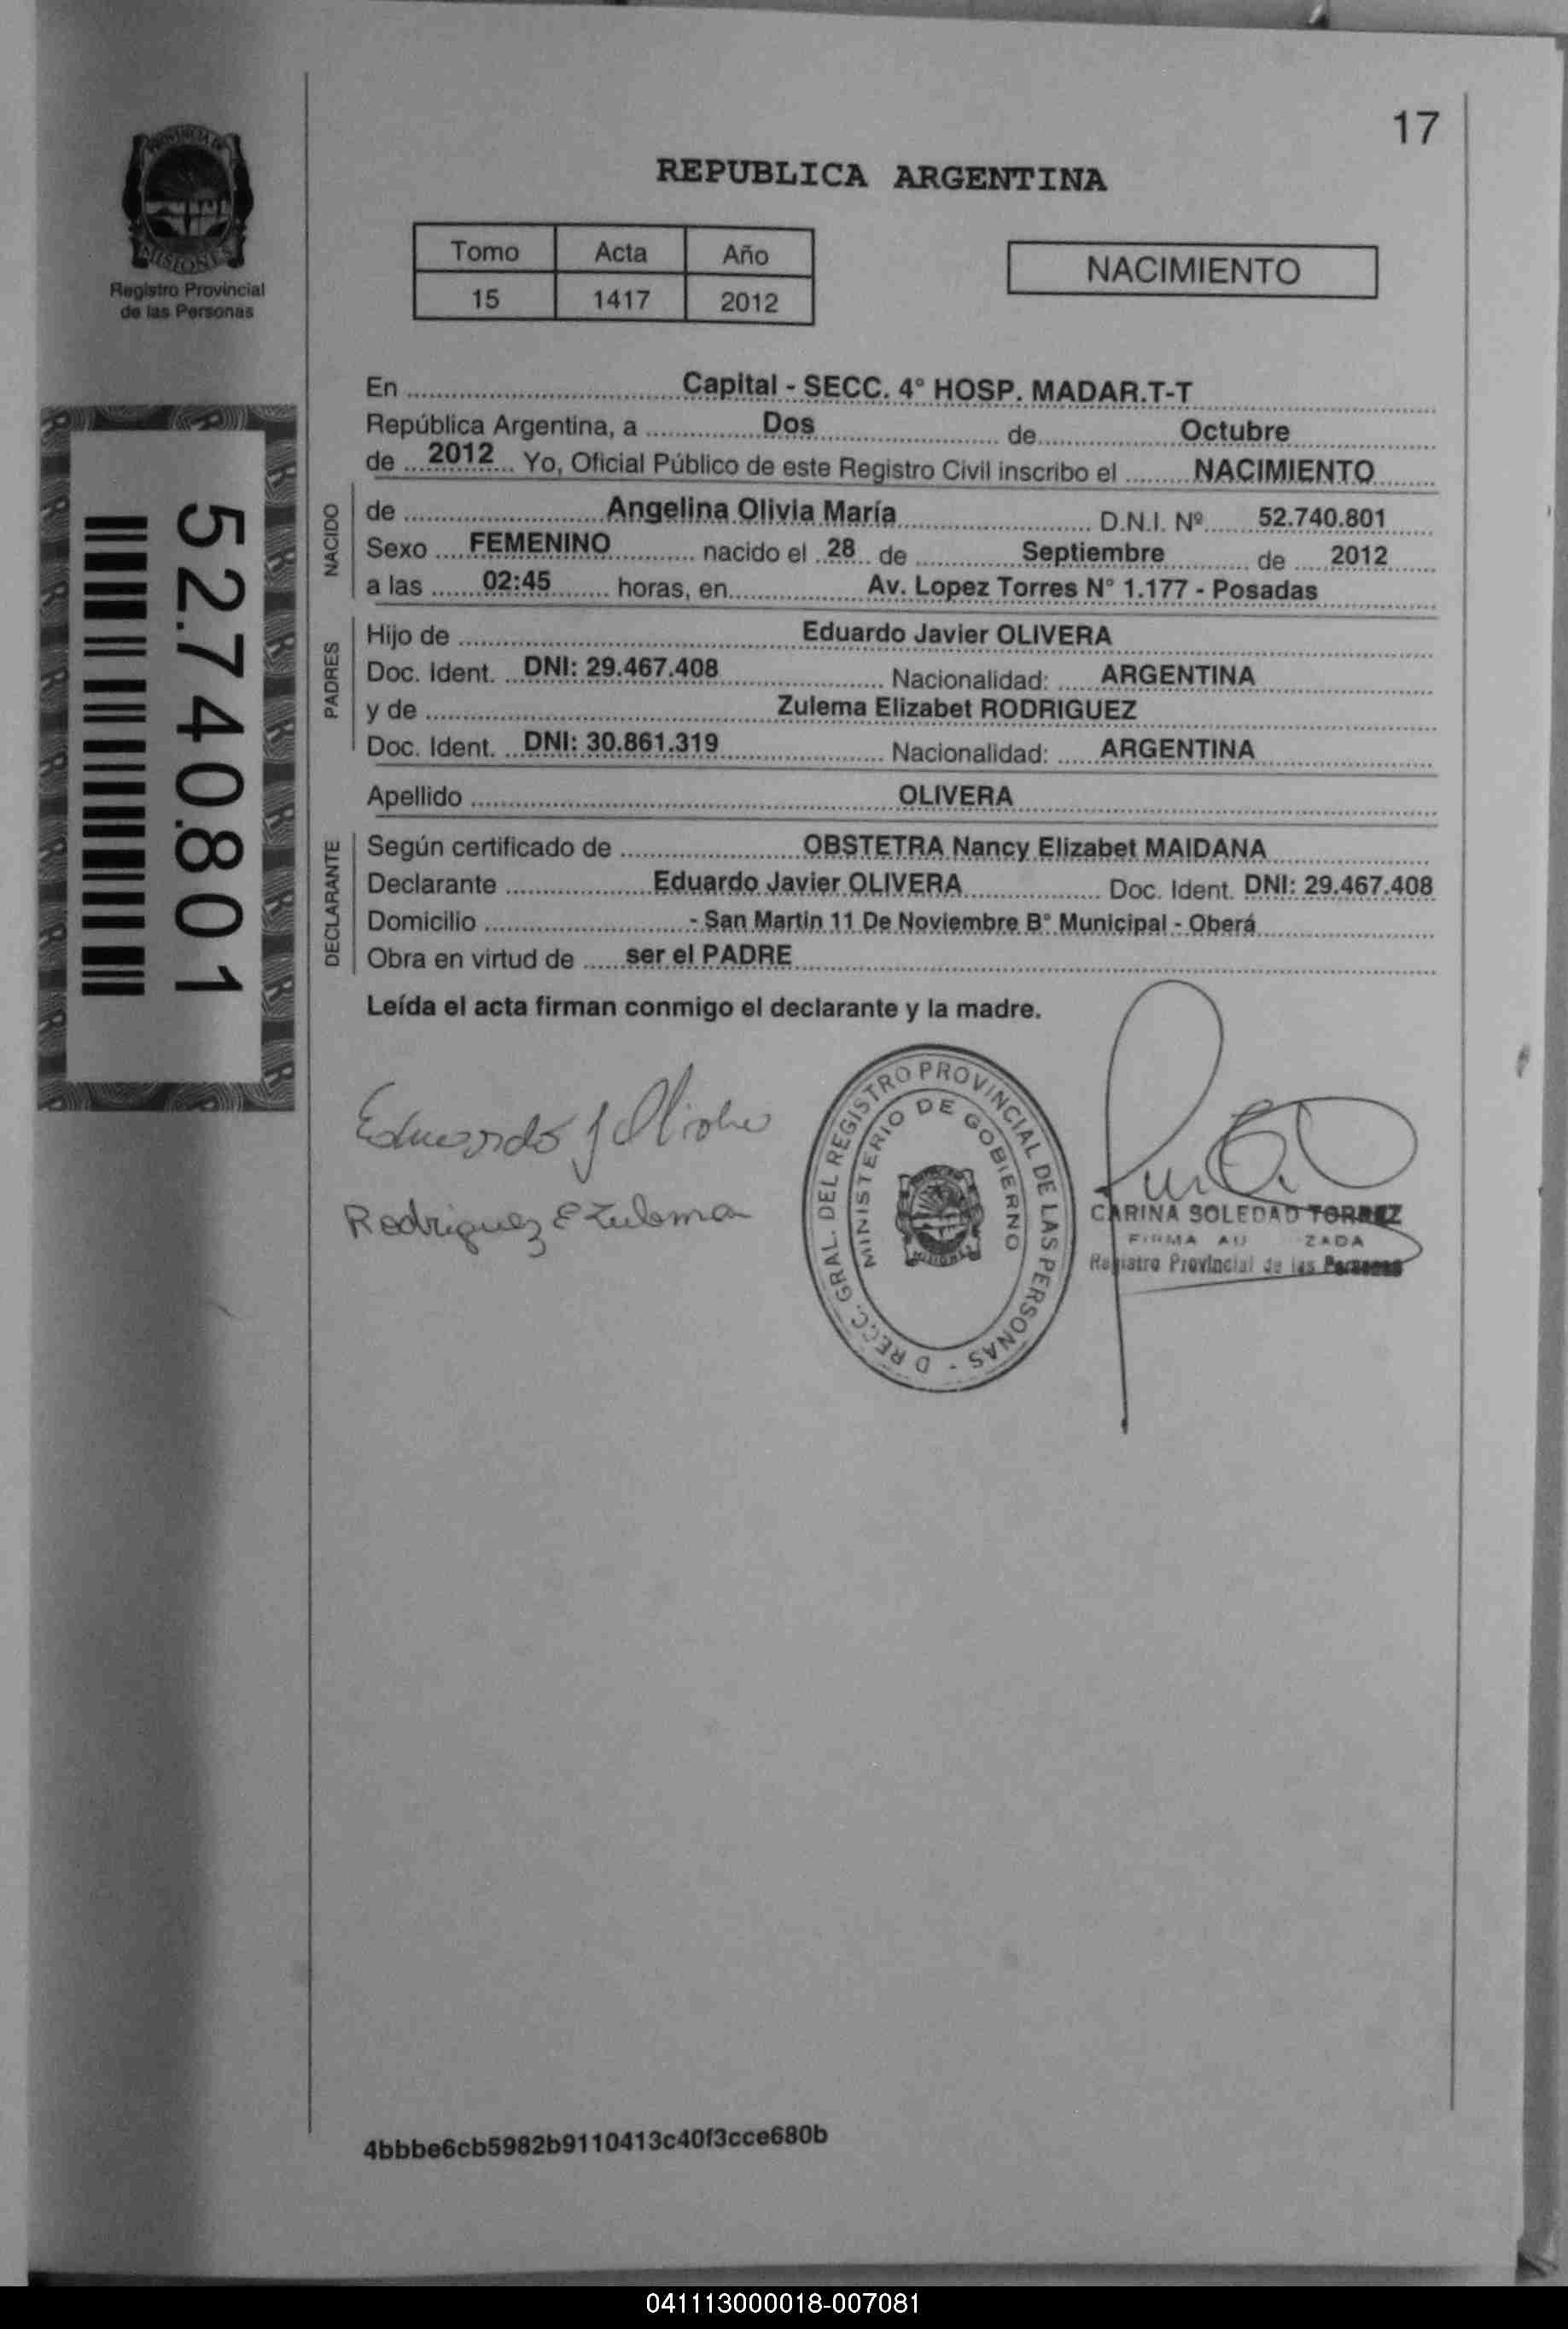 17
PROVINCIA DE
MISIONES
Registro Provincial
de las Personas
REPUBLICA ARGENTINA
Tomo Acta Año
15 1417 2012
NACIMIENTO
52.740.801
En Capital - SECC. 4° HOSP. MADAR.T-T
República Argentina, a Dos de Octubre
de 2012 Yo, Oficial Público de este Registro Civil inscribo el NACIMIENTO
NACIDO
de Angelina Olivia María D.N.I. Nº 52.740.801
Sexo FEMENINO nacido el 28 de Septiembre de 2012
a las 02:45 horas, en Av. Lopez Torres N° 1.177 - Posadas
PADRES
Hijo de Eduardo Javier OLIVERA
Doc. Ident. DNI: 29.467.408 Nacionalidad: ARGENTINA
y de Zulema Elizabet RODRIGUEZ
Doc. Ident. DNI: 30.861.319 Nacionalidad: ARGENTINA
Apellido OLIVERA
DECLARANTE
Según certificado de OBSTETRA Nancy Elizabet MAIDANA
Declarante Eduardo Javier OLIVERA Doc. Ident. DNI: 29.467.408
Domicilio - San Martin 11 De Noviembre B° Municipal - Oberá
Obra en virtud de ser el PADRE
Leída el acta firman conmigo el declarante y la madre.
Eduardo J
Rodriguez E Zulema
D RECC. GRAL. DEL REGISTRO PROVINCIAL DE LAS PERSONAS -
MINISTERIO DE GOBIERNO
MISIONES
CARINA SOLEDAD TORREZ
FIRMA AU ZADA
Registro Provincial de las Personas
4bbbe6cb5982b9110413c40f3cce680b
041113000018-007081